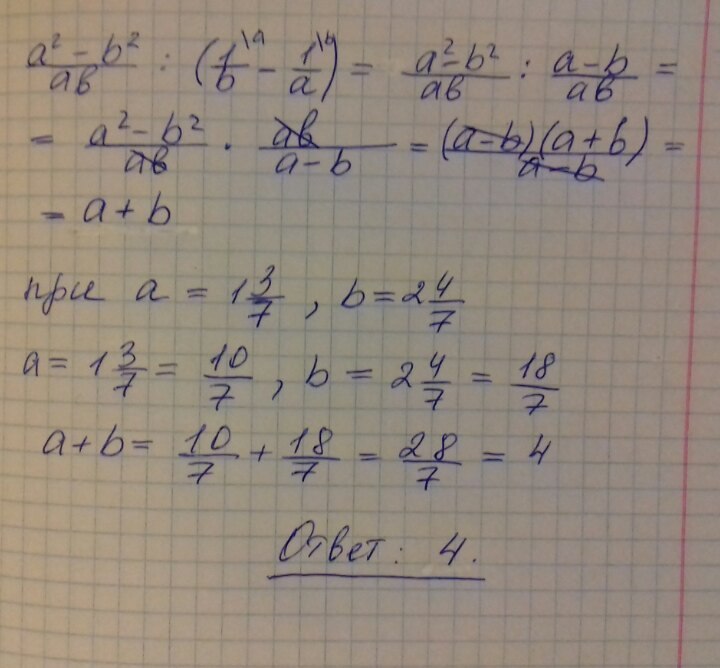 a² - b² / ab : (1\a / b - 1\b / a) = a² - b² / ab : a - b / ab =
= a² - b² / ab · ab / a - b = (a - b)(a + b) / a - b =
= a + b
при a = 1 3/7 , b = 2 4/7
a = 1 3/7 = 10/7 , b = 2 4/7 = 18/7
a + b = 10/7 + 18/7 = 28/7 = 4
Ответ: 4.